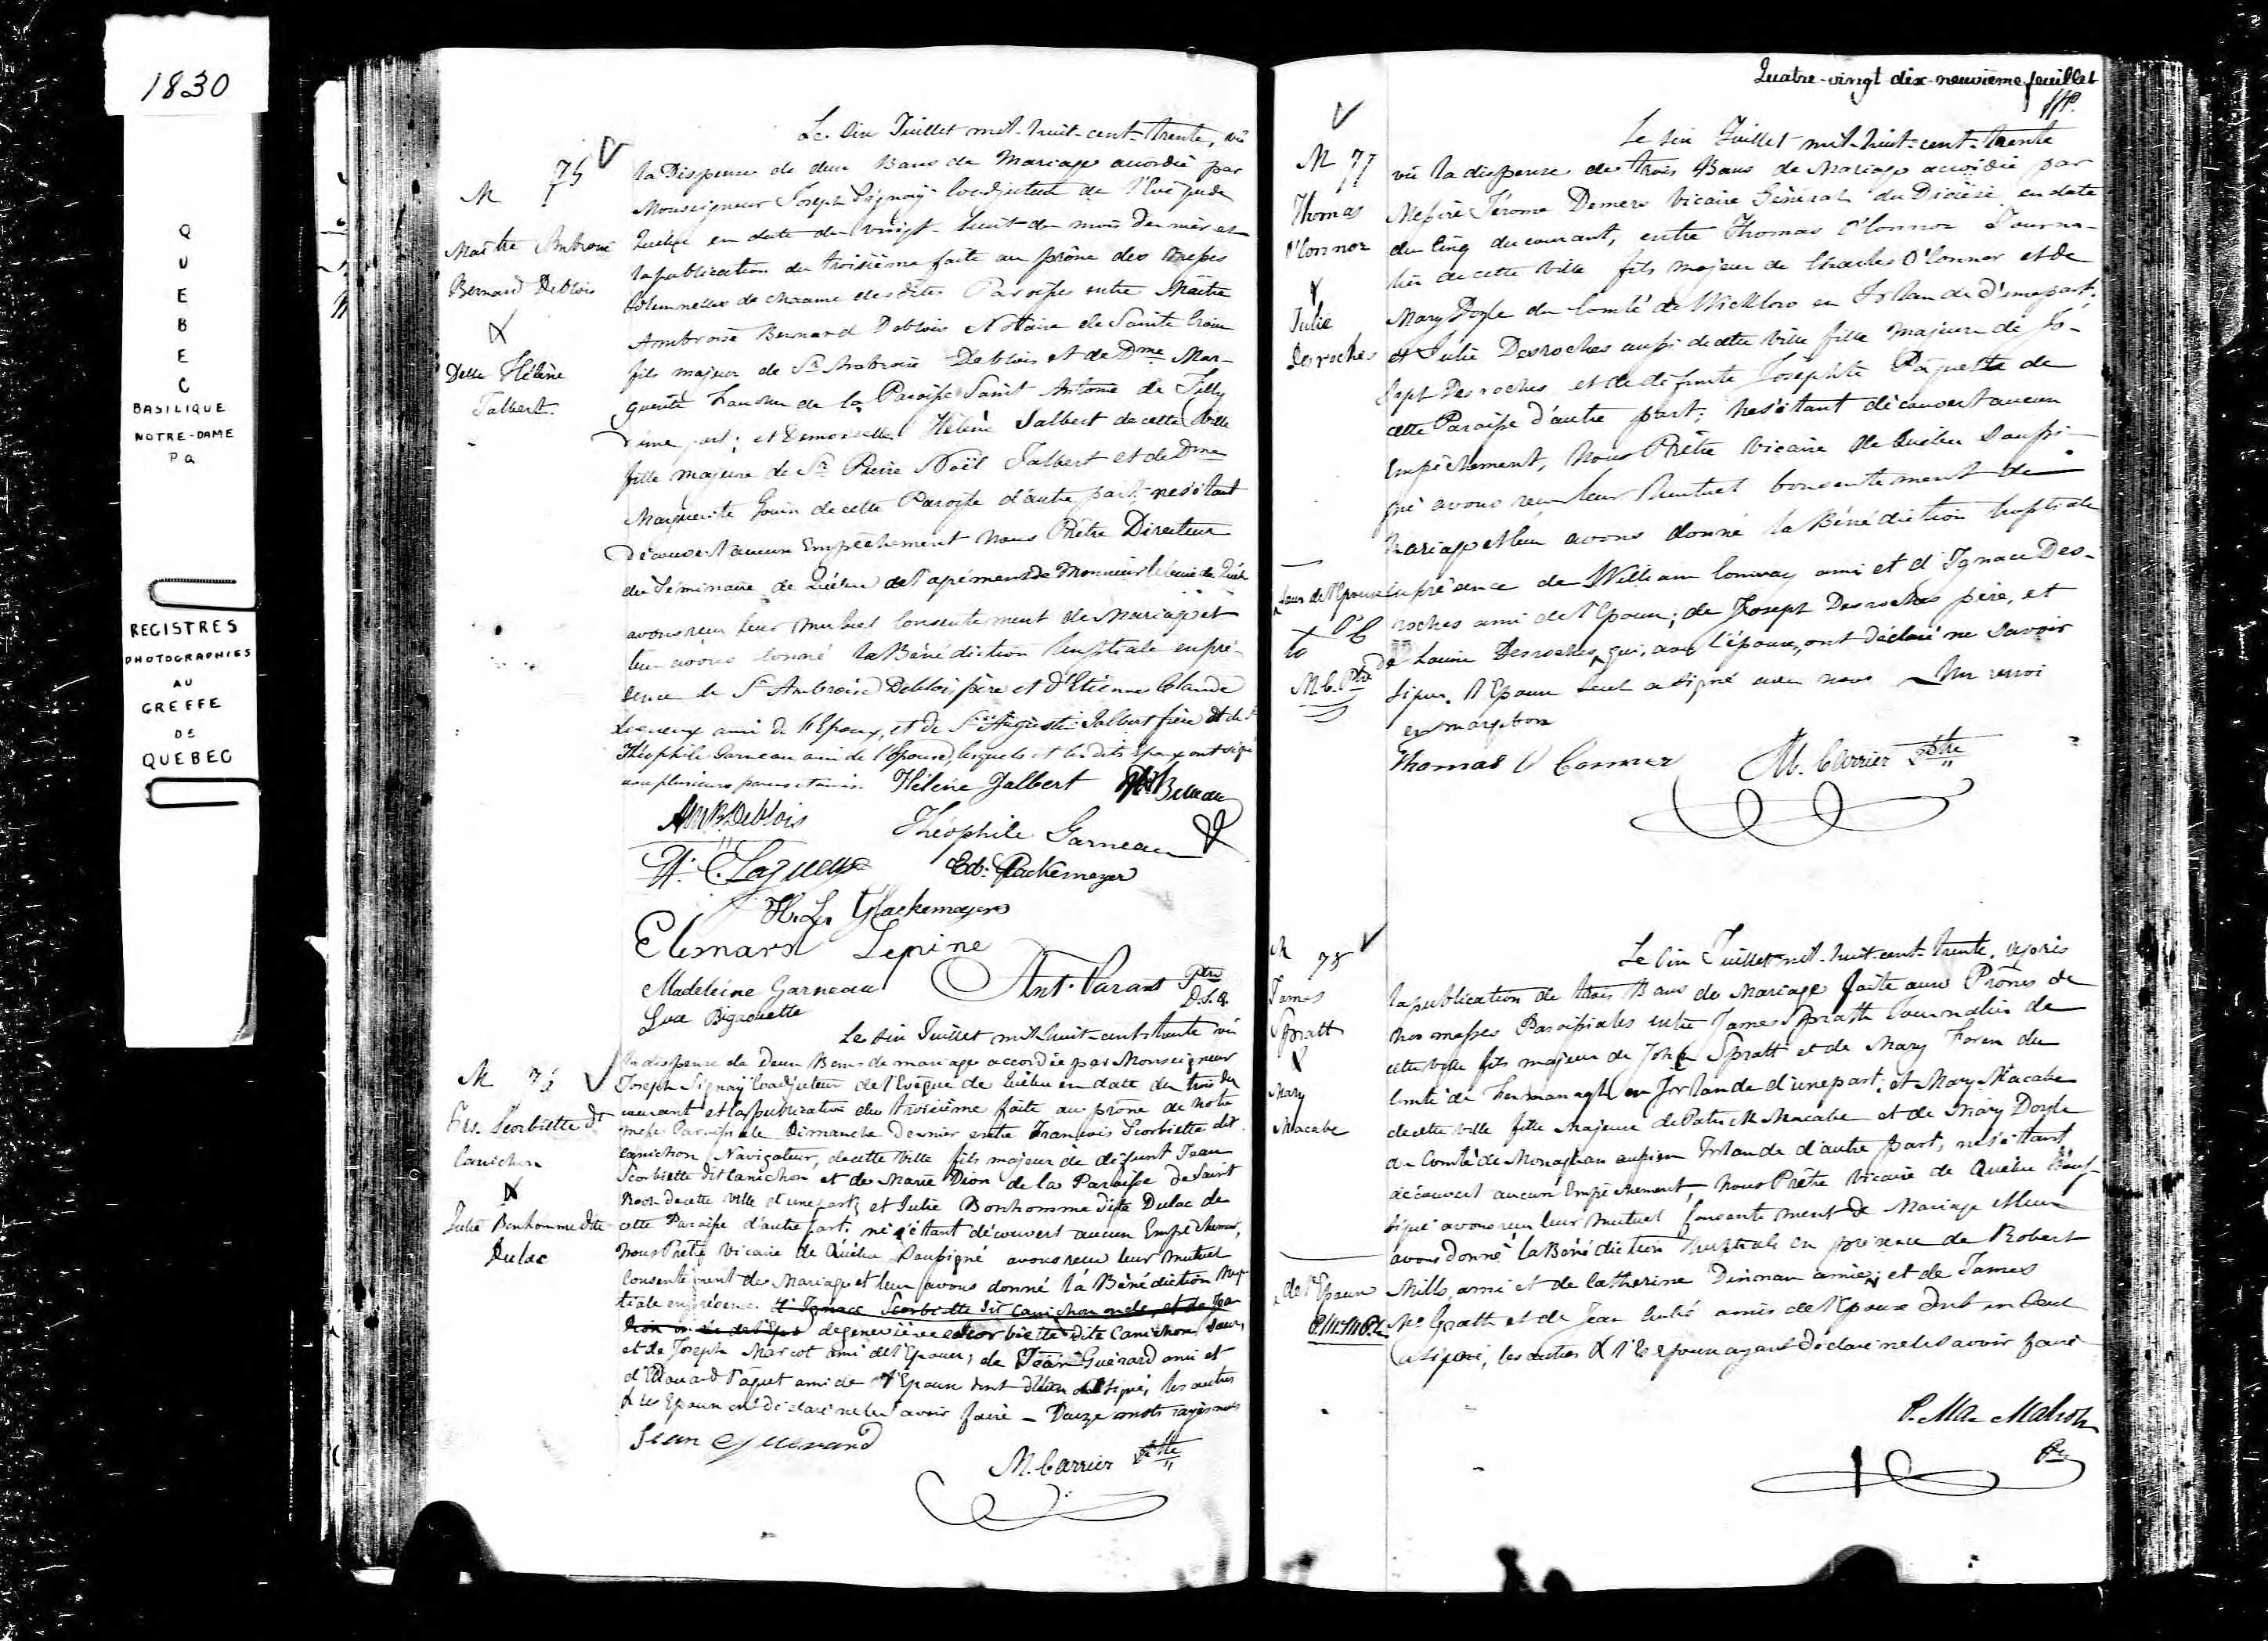 1830
QUEBEC
BASILIQUE
NOTRE-DAME
PQ
REGISTRES
PHOTOGRAPHIES
AU
GREFFE
DE
QUEBEC
M 75
Maître Ambroise
Bernard Deblois
&
Delle Hélène
Jalbert.
Le six Juillet mil-huit-cent-trente, vû
la Dispense de deux Bans de Mariage accordée par
Monseigneur Joseph Signaÿ Coadjuteur de l'Evêque de
Québec en date du vingt-huit du mois dernier et
la publication du troisième faite au prône des messes
Solemnelles de chacune des dites Paroisses entre Maître
Ambroise Bernard Deblois Notaire de Sainte Croix
fils majeur de Sr. Ambroise Deblois et de Dme Mar-
guerite de la Paroisse Saint Antoine de Tilly
d'une part; et Demoiselle Hélène Jalbert de cette Ville
fille majeure de Sr. Pierre Noël Jalbert et de Dme
Marguerite Gouin de cette Paroisse d'autre part; ne s'étant
découvert aucun Empêchement Nous Prêtre Directeur
du Séminaire de Québec de l'agrément de Monsieur le Curé de Québec
avons reçu leur mutuel Consentement de Mariage et
leur avons donné la Bénédiction Nuptiale en pré-
sence de Sr. Ambroise Deblois père et d'Etienne Claude
Lagueux ami de l'Epoux, et de Sr. Augustin Jalbert frère et de
Théophile Garneau ami de l'Epouse, lesquels et les dits Epoux ont signé
avec plusieurs parens et amis. Hélène Jalbert
Amb. B. Deblois Théophile Garneau
E. C. Lagueux Ed: Glackemeyer
H. Ls Glackemeyer
Elémars Lepine
Madeleine Garneau Ant. Parant Ptre
Luce Bigaouette D.S.Q.
M 76
Frs. Scorbiette dt
Canichon
&
Julie Bonhomme dite
Dulac
Le six Juillet mil-huit-cent-trente vû
la dispense de deux Bans de mariage accordée par Monseigneur
Joseph Signaÿ Coadjuteur de l'Evêque de Québec en date du trois du
courant et la publication du troisième faite au prône de notre
messe Paroissiale Dimanche dernier entre François Scorbiette dit
Canichon Navigateur, de cette Ville fils majeur de défunt Jean
Scorbiette dit Canichon et de Marie Dion de la Paroisse de Saint
Roch de cette Ville d'une part; et Julie Bonhomme dite Dulac de
cette Paroisse d'autre part; ne s'étant découvert aucun Empêchement,
Nous Prêtre Vicaire de Québec Soussigné avons reçu leur mutuel
Consentement de Mariage et leur avons donné la Bénédiction Nup-
tiale en présence d'Ignace Scorbiette dit Canichon oncle, et de
de Geneviève Scorbiette dite Canichon soeur,
et de Joseph Marcot ami de l'Epoux; de Jean Guérard ami et
d'Edouard Paquet ami de l'Epouse dont a signé; les autres
& les Epoux ont déclaré ne le savoir faire — Douze mots rayés nuls
Jean Guerard
M. Carrier Ptre
Quatre-vingt dix-neuvième feuillet
M 77
Thomas
O'Connor
&
Julie
Desroches
Le six Juillet mil-huit-cent-trente
vû la dispense de trois Bans de Mariage accordée par
Messire Jérome Demers Vicaire Général du Diocèse en date
du cinq du courant, entre Thomas O'Connor Journa-
lier de cette Ville fils majeur de Charles O'Connor et de
Mary Doyle du Comté de Wicklow en Irlande d'une part;
et Julie Desroches aussi de cette Ville fille majeure de Jo-
seph Desroches et de défunte Josephte Paquette de
cette Paroisse d'autre part; ne s'étant découvert aucun
Empêchement, Nous Prêtre Vicaire de Québec Soussi-
gné avons reçu leur Mutuel Consentement de
Mariage et leur avons donné la Bénédiction Nuptiale
en présence de William Conway ami et d'Ignace Des-
roches ami de l'Epoux; de Joseph Desroches père, et
de Louise Desroches, qui, avec l'épouse, ont déclaré ne savoir
signer, l'Epoux seul a signé avec nous — Un renvoi
en marge bon
soeur de l'Epouse
M.C. Ptre
Thomas O Conner M. Carrier Ptre
M 78
James
Spratt
&
Mary
Macabe
Le Six Juillet mil-huit-cent-trente, après
la publication de trois Bans de Mariage faite aux Prônes de
nos messes Paroissiales entre James Spratt Journalier de
cette Ville fils majeur de John Spratt et de Mary Foren du
Comté de Fermanagh en Irlande d'une part; et Mary Macabe
de cette Ville fille Majeure de Patrick Macabe et de Mary Doyle
du Comté de Monaghan aussi en Irlande d'autre part; ne s'étant
découvert aucun Empêchement, Nous Prêtre Vicaire de Québec Sous-
signé avons reçu leur mutuel Consentement de Mariage et leur
avons donné la Bénédiction Nuptiale en présence de Robert
Mills, ami et de Catherine Dinnan amie, et de James
Mc Grath et de Jean amis de l'Epouse dont un seul
a signé, les autres & l'Epoux ayant déclaré ne le savoir faire
de l'Epoux
P. Mc Mahon
Ptre